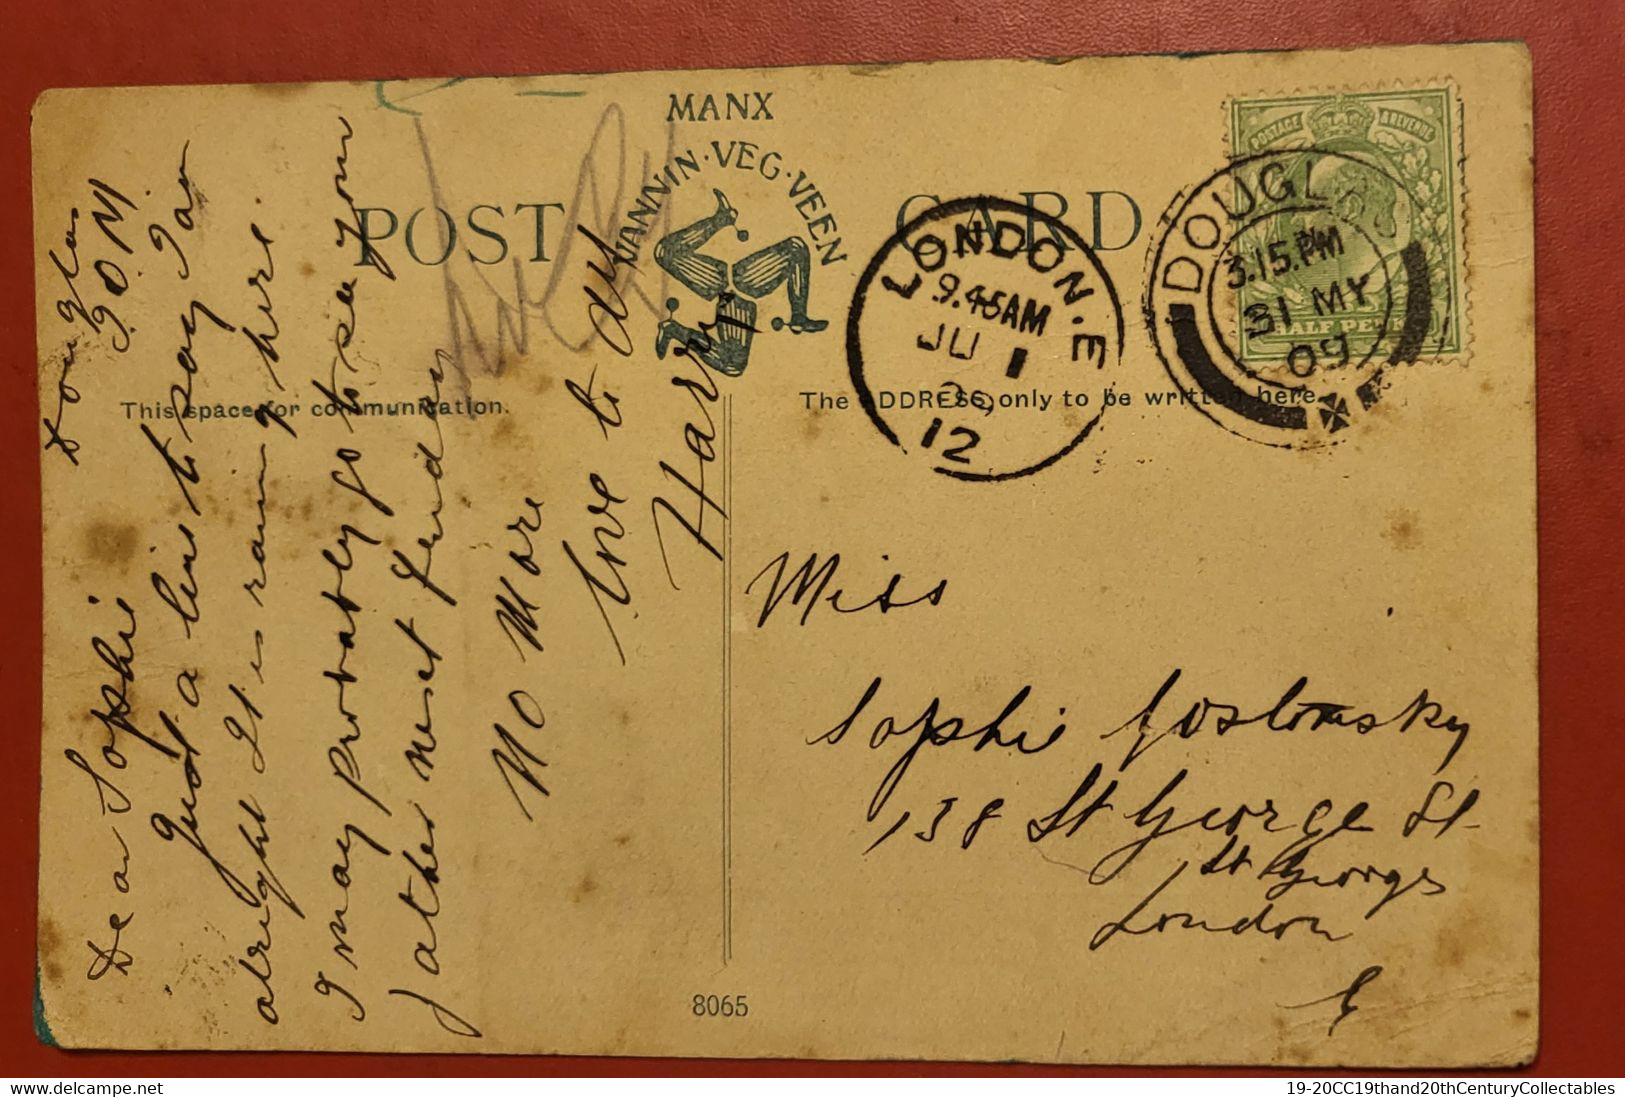 MANX
VANNIN·VEG·VEEN
POST CARD
This space for communication.
The ADDRESS only to be written here.
LONDON.E
9.45AM
JU 1
09
12
DOUGLAS
3.15.PM
31 MY
09
POSTAGE & REVENUE
HALF PENNY
Douglas
I O M
Dear Sophie
Just a line to say I am
alright It is raining here.
I may probably go to see your
father next Sunday
No More
love to all
Harry
Miss
Sophie
138 St George St
St Georges
London
E
8065
19-20CC19thand20thCenturyCollectables
delcampe.net